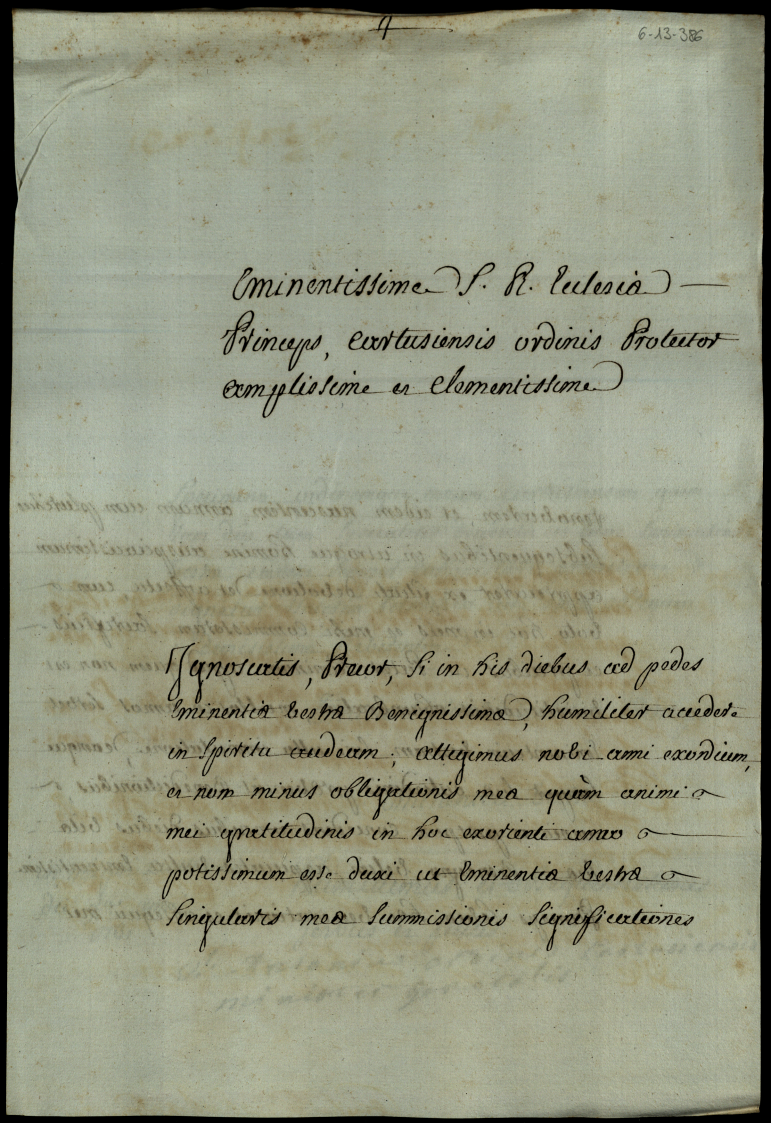 6-13-386
Eminentissime S. R. Eclesiæ
Princeps, Cartusiensis ordinis Protector
amplissime et Clementissime
Ignoscatis, Precor, si in his diebus ad pedes
Eminentiæ Vestræ Benignissimæ, humiliter accedere
in spiritu audeam; attigimus nobi anni exordium,
et non minus obligationis meæ quàm animi
mei gratitudinis in hoc exorienti anno
potissimum esse duxi ut Eminentiæ Vestræ
singularis meæ summissionis significationes